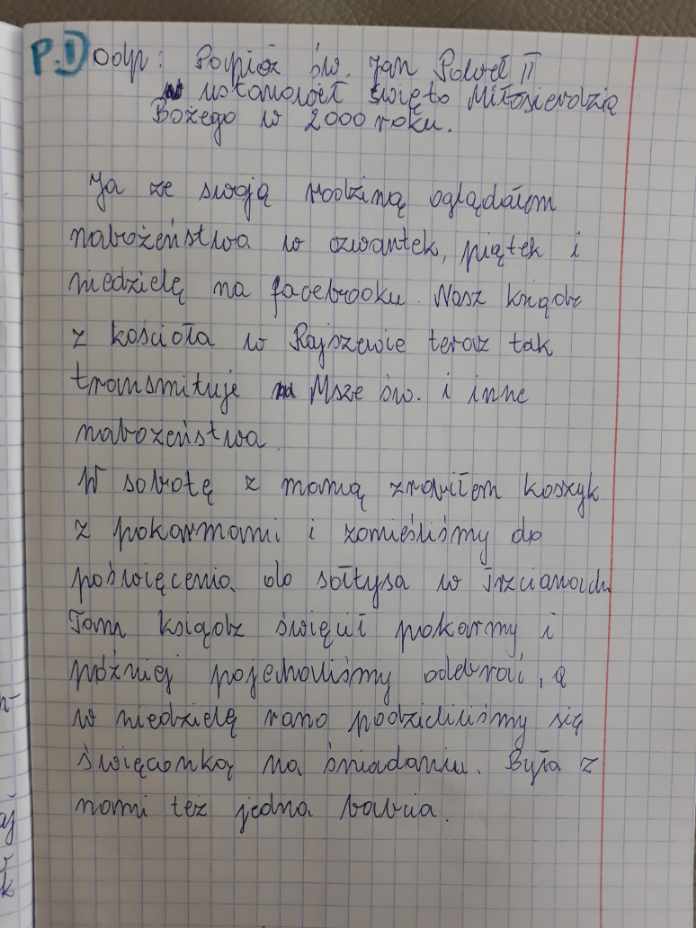 P.1) Odp: Papież św. Jan Paweł II
ustanowił święto Miłosierdzia
Bożego w 2000 roku.
Ja ze swoją rodziną oglądałem
nabożeństwa w czwartek, piątek i
niedzielę na facebooku. Nasz ksiądz
z kościoła w Rajszewie teraz tak
transmituje Msze św. i inne
nabożeństwa.
W sobotę z mamą zrobiłem koszyk
z pokarmami i zanieśliśmy do
poświęcenia do sołtysa w Trzcianach.
Tam ksiądz święcił pokarmy i
później pojechaliśmy odebrać, a
w niedzielę rano podzieliliśmy się
święconką na śniadaniu. Była z
nami też jedna babcia.